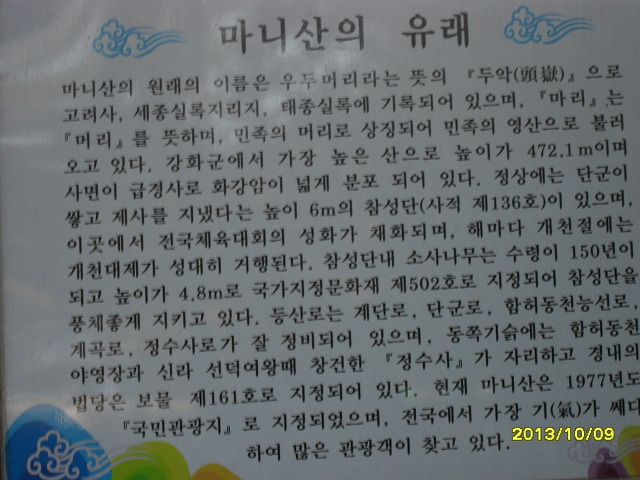 마니산의 유래
마니산의 원래의 이름은 우두머리라는 뜻의 『두악(頭嶽)』으로
고려사, 세종실록지리지, 태종실록에 기록되어 있으며, 『마리』는
『머리』를 뜻하며, 민족의 머리로 상징되어 민족의 영산으로 불러
오고 있다. 강화군에서 가장 높은 산으로 높이가 472.1m이며
사면이 급경사로 화강암이 넓게 분포 되어 있다. 정상에는 단군이
쌓고 제사를 지냈다는 높이 6m의 참성단(사적 제136호)이 있으며,
이곳에서 전국체육대회의 성화가 채화되며, 해마다 개천절에는
개천대제가 성대히 거행된다. 참성단내 소사나무는 수령이 150년이
되고 높이가 4.8m로 국가지정문화재 제502호로 지정되어 참성단을
풍체좋게 지키고 있다. 등산로는 계단로, 단군로, 함허동천능선로,
계곡로, 정수사로가 잘 정비되어 있으며, 동쪽기슭에는 함허동천
야영장과 신라 선덕여왕때 창건한 『정수사』가 자리하고 경내의
법당은 보물 제161호로 지정되어 있다. 현재 마니산은 1977년도
『국민관광지』로 지정되었으며, 전국에서 가장 기(氣)가 쎄다
하여 많은 관광객이 찾고 있다.
2013/10/09